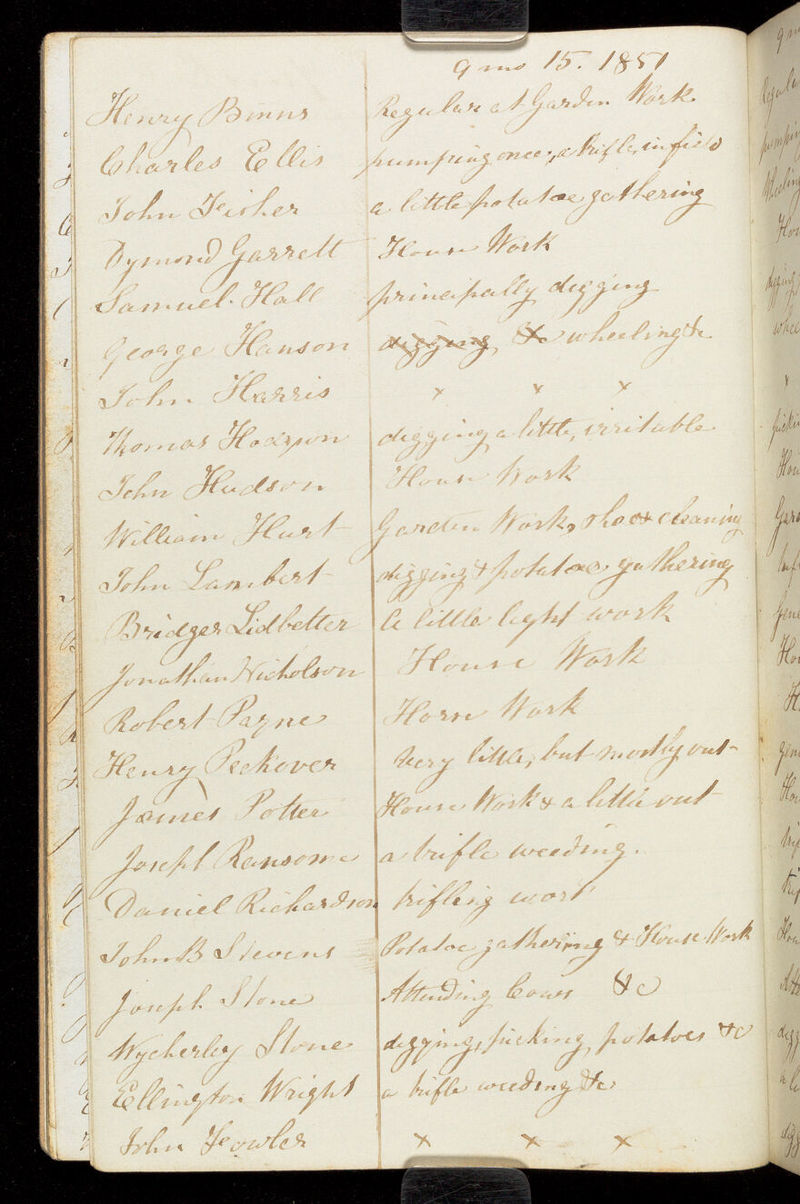 9 mo 15. 1851
Henry Binns Regular at Garden Work
Charles Ellis pumping once, a trifle in field
John Fisher a little potatoe gathering
Dymond Garrett House Work
Samuel Hall principally digging
George Hanson digging &c wheeling &c
John Harris × × ×
Thomas Hodgson digging a little, irritable
John Hudson House Work
William Hurt Garden Work, shoe cleaning
John Lambert digging & potatoe gathering
Bridger Lidbetter A little light work
Jonathan Nicholson House Work
Robert Payne Work
Henry Peckover very little, but mostly out
James Potter House Work & a little out
Joseph Ransome a trifle weeding.
Daniel Richardson trifling work
John B Stevens Potatoe gathering & House Work
Joseph Stone Attending Cows &c
Wycherley Stone digging, picking potatoes &c
Ellington Wright a trifle weeding &c
John Fowler × × ×